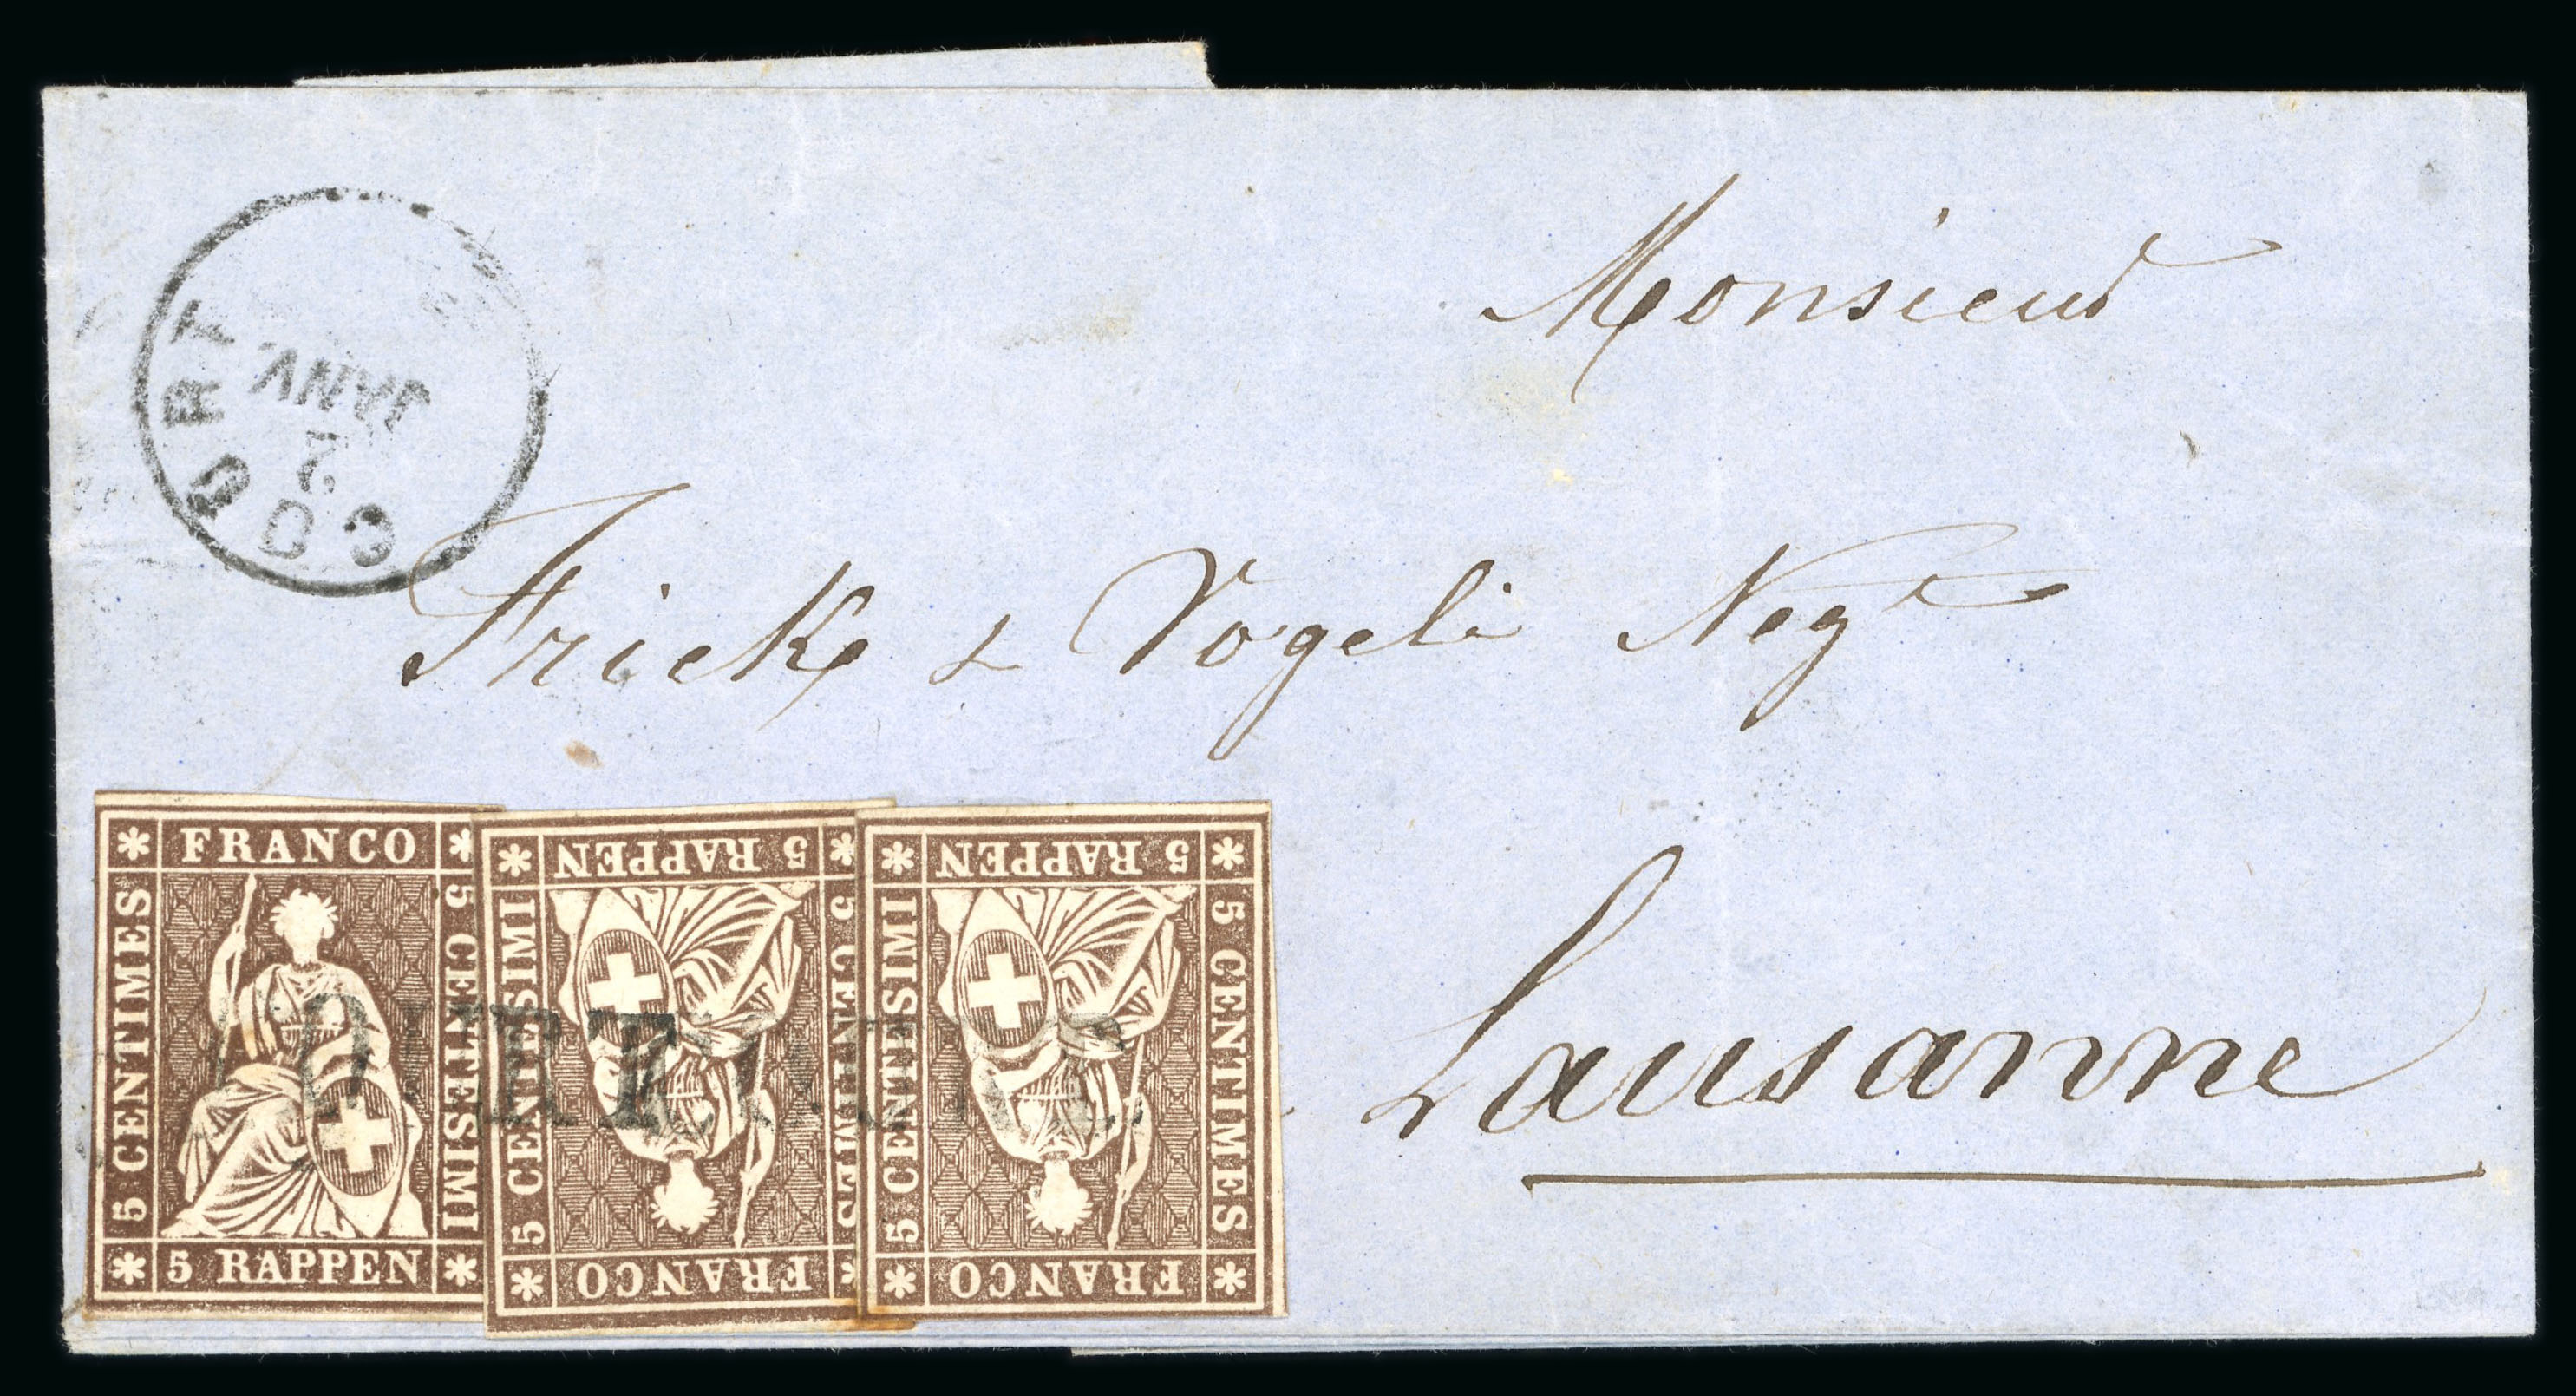 COURT
2
JANV.
Monsieur
Frick & Vogeli Negt
Lausanne
FRANCO
5 CENTIMES
5 CENTESIMI
5 RAPPEN
5 RAPPEN
5 CENTESIMI
5 CENTIMES
FRANCO
5 RAPPEN
5 CENTESIMI
5 CENTIMES
FRANCO